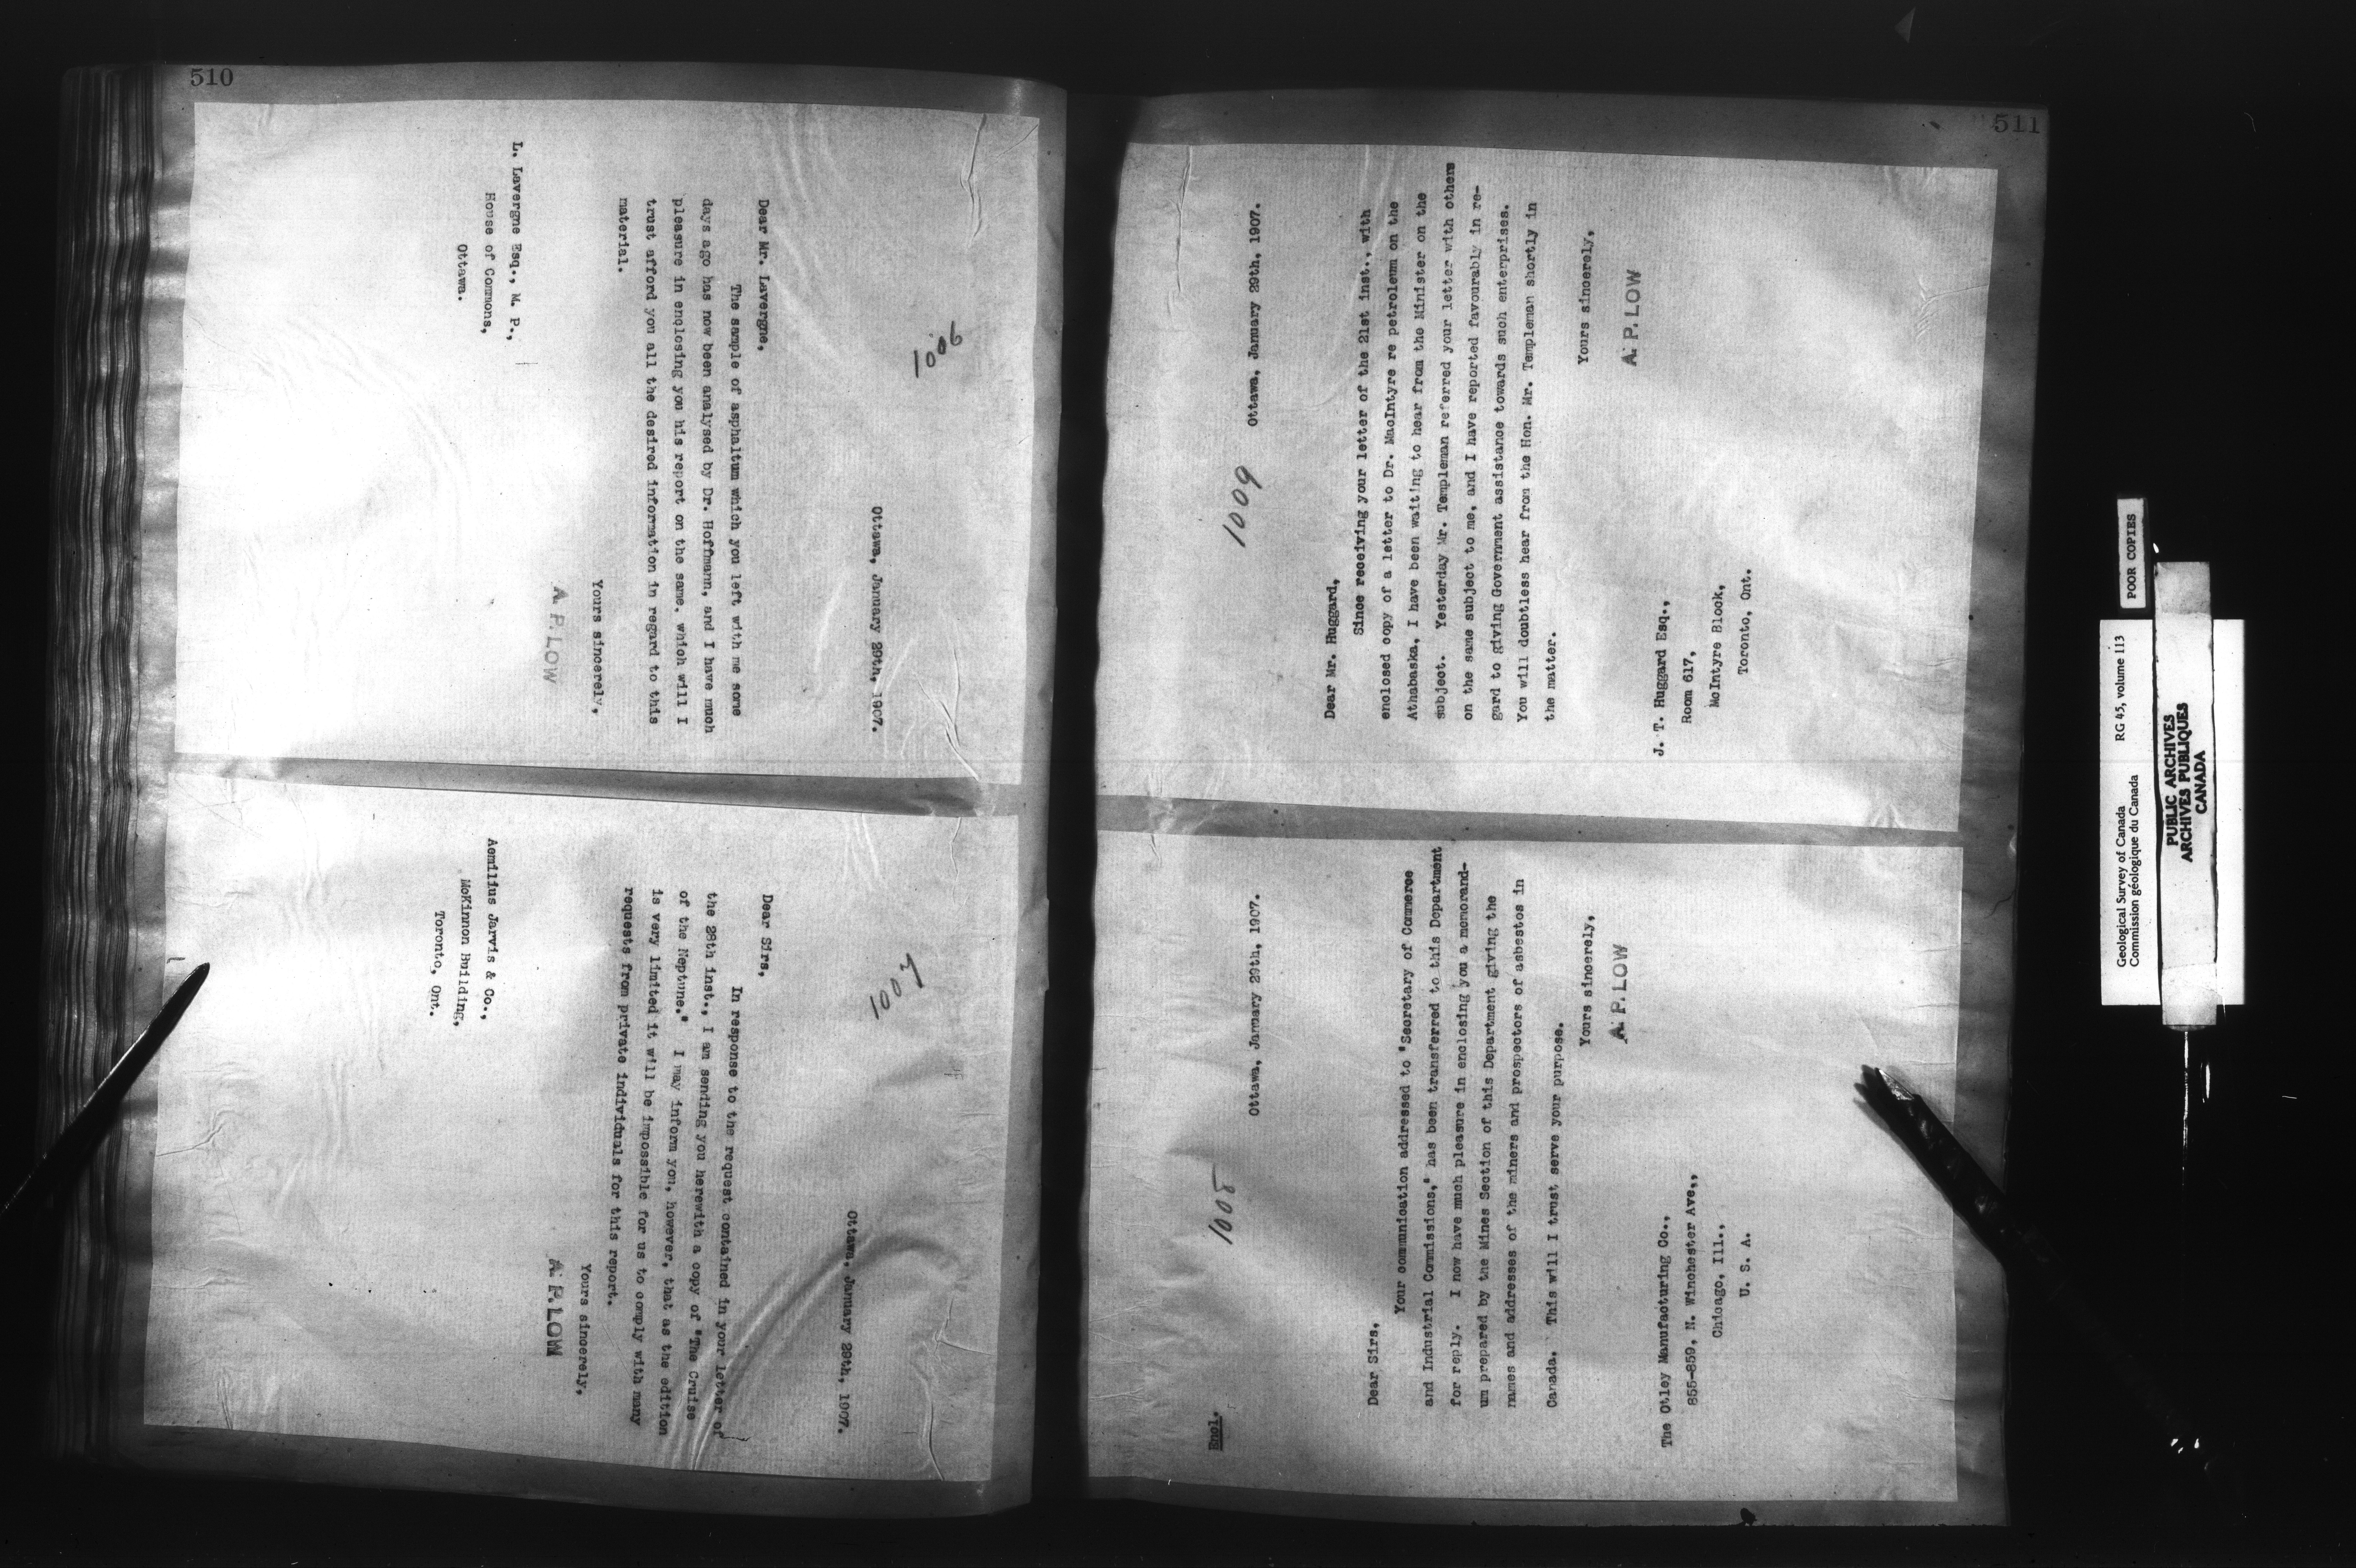 510
1006
Ottawa, January 29th, 1907.
Dear Mr. Lavergne,
The sample of asphaltum which you left with me some
days ago has now been analysed by Dr. Hoffmann, and I have much
pleasure in enclosing you his report on the same, which will I
trust afford you all the desired information in regard to this
material.
Yours sincerely,
A. P. LOW
L. Lavergne Esq., M. P.,
House of Commons,
Ottawa.
1007
Ottawa, January 29th, 1907.
Dear Sirs,
In response to the request contained in your letter of
the 28th inst., I am sending you herewith a copy of "The Cruise
of the Neptune." I may inform you, however, that as the edition
is very limited it will be impossible for us to comply with many
requests from private individuals for this report.
Yours sincerely,
A. P. LOW
Aemilius Jarvis & Co.,
McKinnon Building,
Toronto, Ont.
511
Encl.
1008
Ottawa, January 29th, 1907.
Dear Sirs,
Your communication addressed to "Secretary of Commerce
and Industrial Commissions," has been transferred to this Department
for reply. I now have much pleasure in enclosing you a memorand-
um prepared by the Mines Section of this Department giving the
names and addresses of the miners and prospectors of asbestos in
Canada. This will I trust serve your purpose.
Yours sincerely,
A. P. LOW
The Otley Manufacturing Co.,
855-859, N. Winchester Ave.,
Chicago, Ill.,
U. S. A.
1009
Ottawa, January 29th, 1907.
Dear Mr. Huggard,
Since receiving your letter of the 21st inst., with
enclosed copy of a letter to Dr. MacIntyre re petroleum on the
Athabaska, I have been waiting to hear from the Minister on the
subject. Yesterday Mr. Templeman referred your letter with others
on the same subject to me, and I have reported favourably in re-
gard to giving Government assistance towards such enterprises.
You will doubtless hear from the Hon. Mr. Templeman shortly in
the matter.
Yours sincerely,
A. P. LOW
J. T. Huggard Esq.,
Room 617,
McIntyre Block,
Toronto, Ont.
POOR COPIES
Geological Survey of Canada RG 45, volume 113
Commission géologique du Canada
PUBLIC ARCHIVES
ARCHIVES PUBLIQUES
CANADA